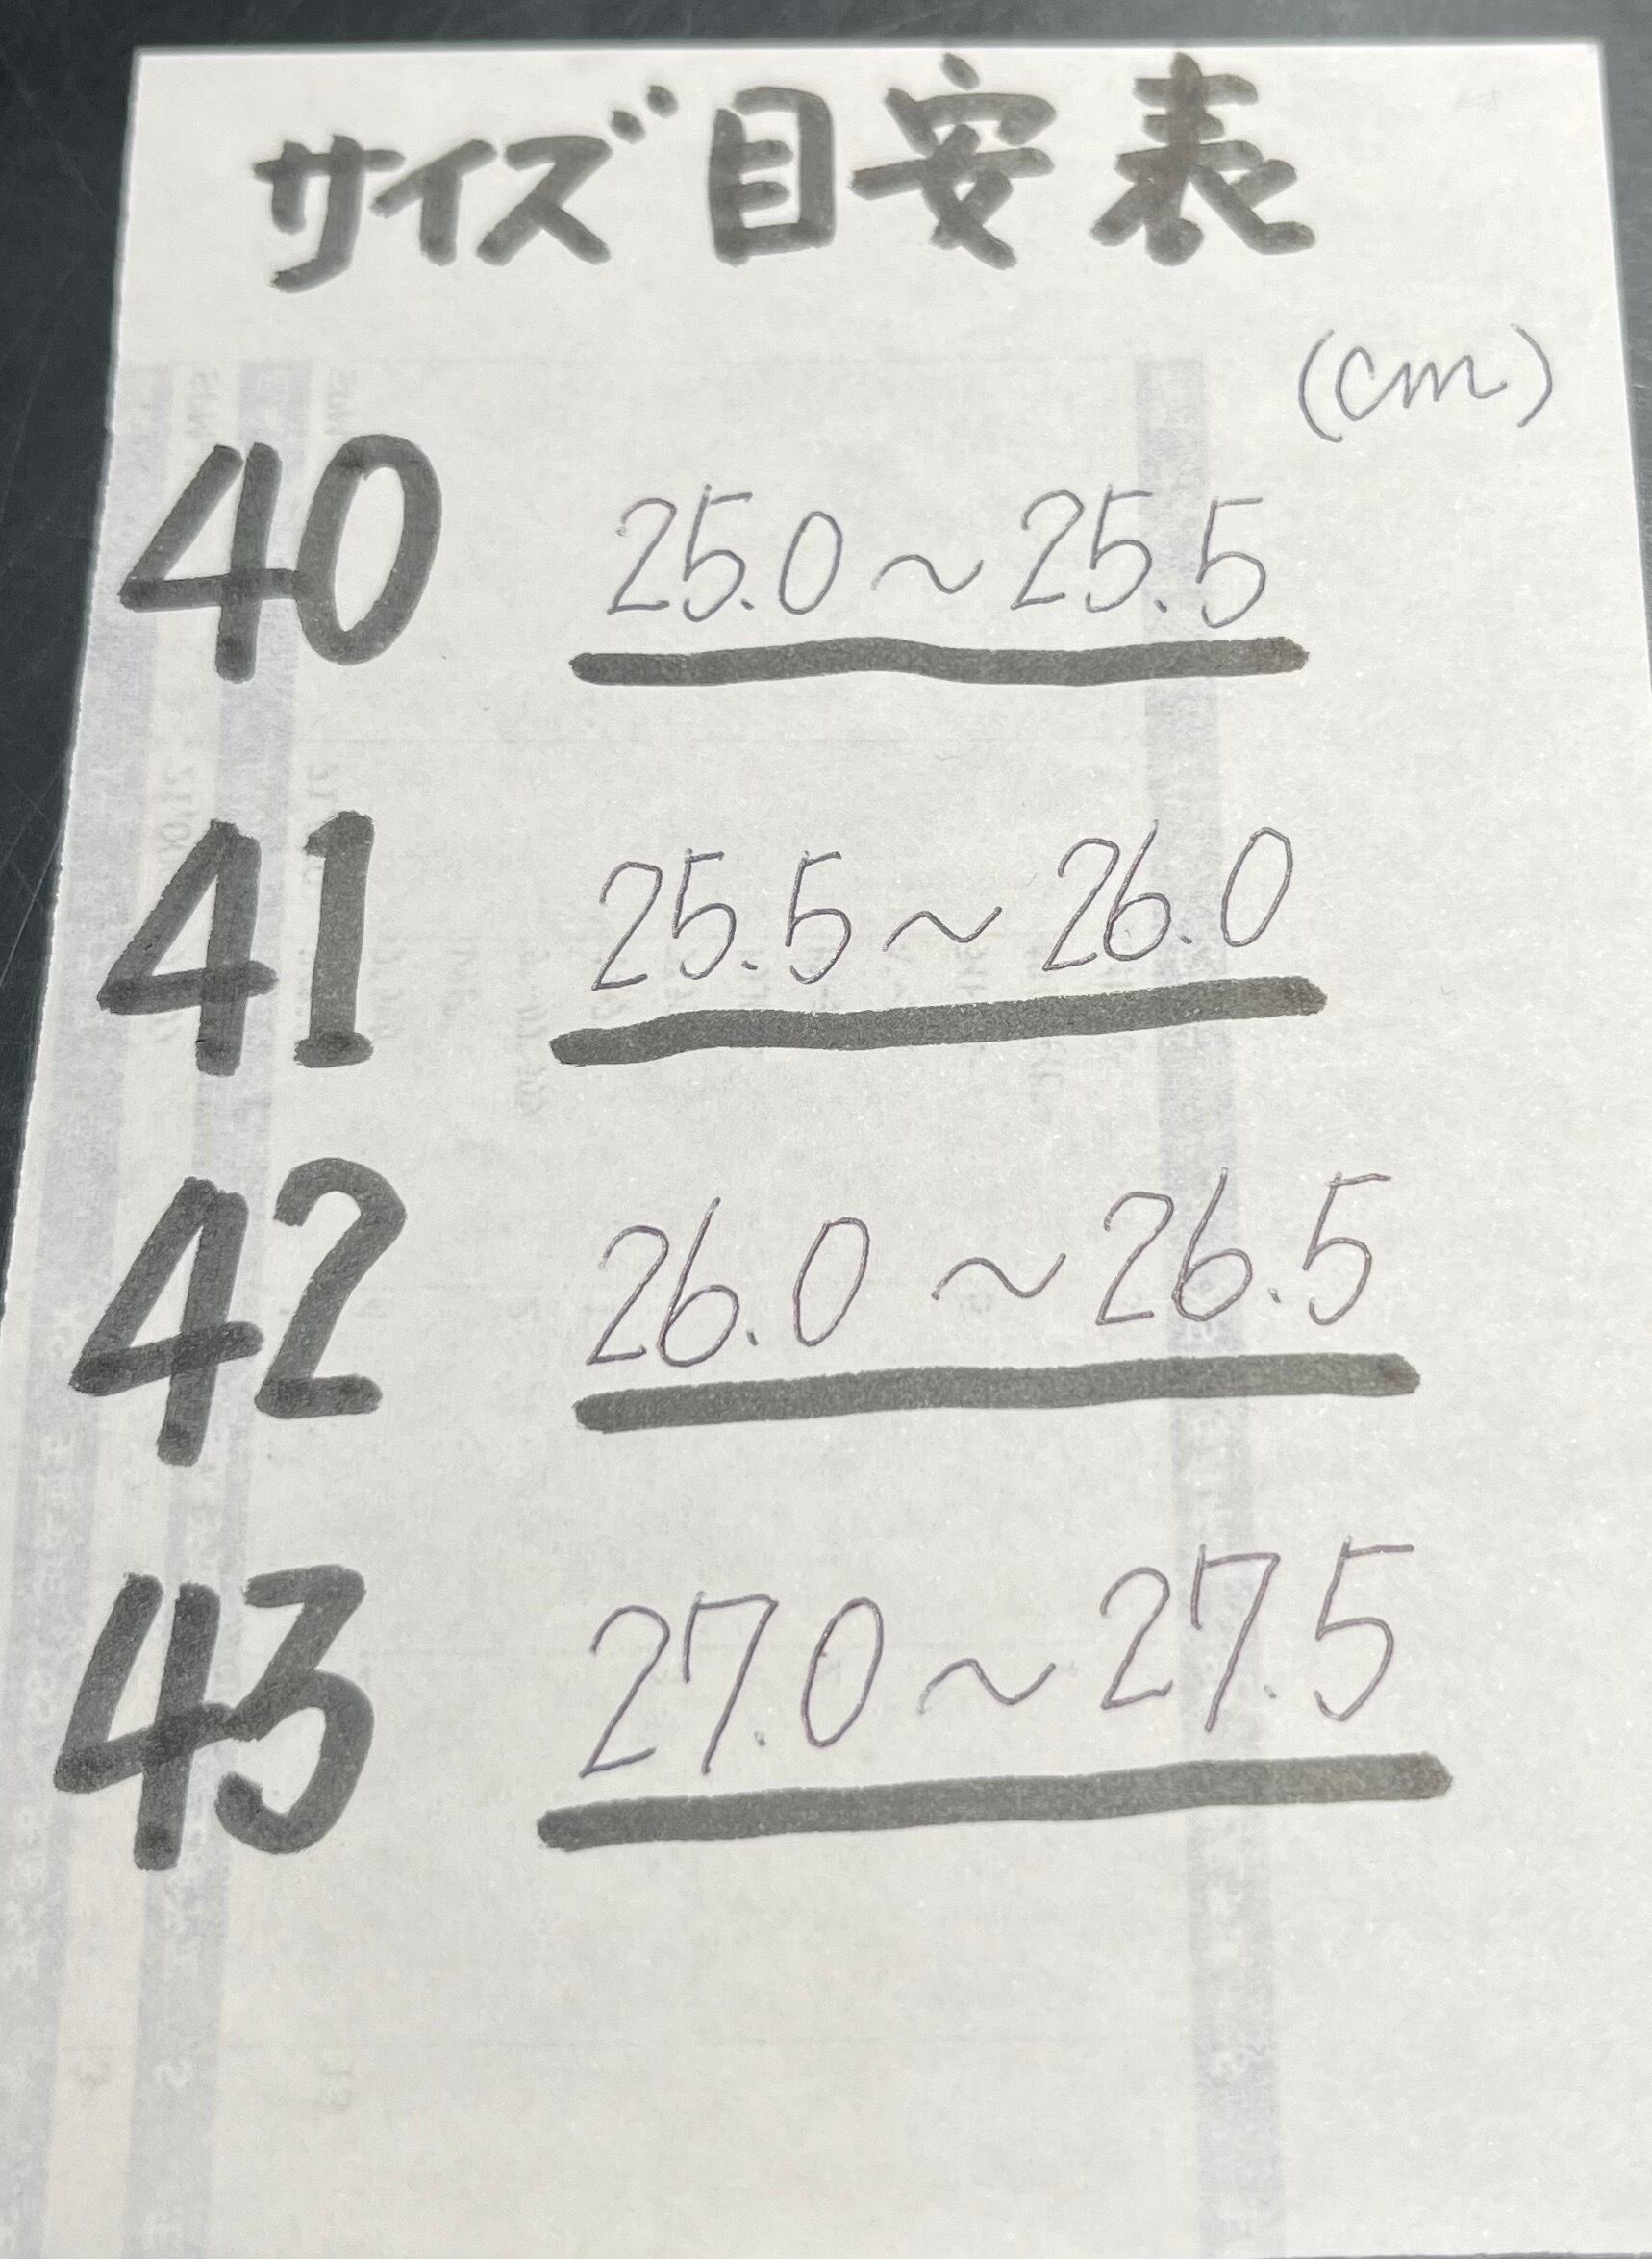 サイズ目安表
(cm)
40 25.0~25.5
41 25.5~26.0
42 26.0~26.5
43 27.0~27.5